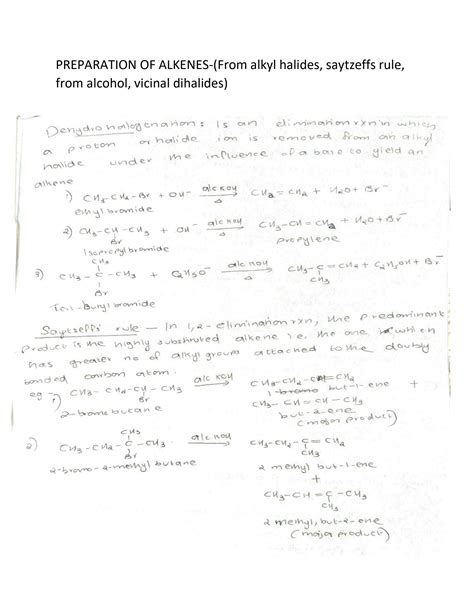 PREPARATION OF ALKENES-(From alkyl halides, saytzeffs rule,
from alcohol, vicinal dihalides)
Dehydrohalogenation: Is an elimination rxn in which
a proton or halide ion is removed from an alkyl
halide under the influence of a base to yield an
alkene
1) CH3-CH2-Br + OH⁻ alc KOH Δ CH2 = CH2 + H2O + Br⁻
ethyl bromide
2) CH3-CH-CH3 + OH⁻ alc KOH Δ CH3-CH=CH2 + H2O+Br⁻
Br propylene
Isopropyl bromide
CH3
3) CH3-C-CH3 + C2H5O⁻ alc KOH Δ CH3-C=CH2 + C2H5OH + Br⁻
Br CH3
Tert-Butyl bromide
Saytzeffs rule - In 1,2-elimination rxn, the predominant
Product is the highly substituted alkene i.e. the one which
has greater no of alkyl groups attached to the doubly
bonded carbon atom.
eg- 1) CH3-CH2-CH-CH3 alc KOH CH3-CH2-CH=CH2
Br but-1-ene +
2-bromobutane CH3-CH=CH-CH3
but-2-ene
(major product)
CH3
2) CH3-CH2-C-CH3 alc KOH CH3-CH2-C=CH2
Br CH3
2-bromo-2-methyl butane 2 methyl but-1-ene
+
CH3-CH=C-CH3
CH3
2 methyl, but-2-ene
(major product)